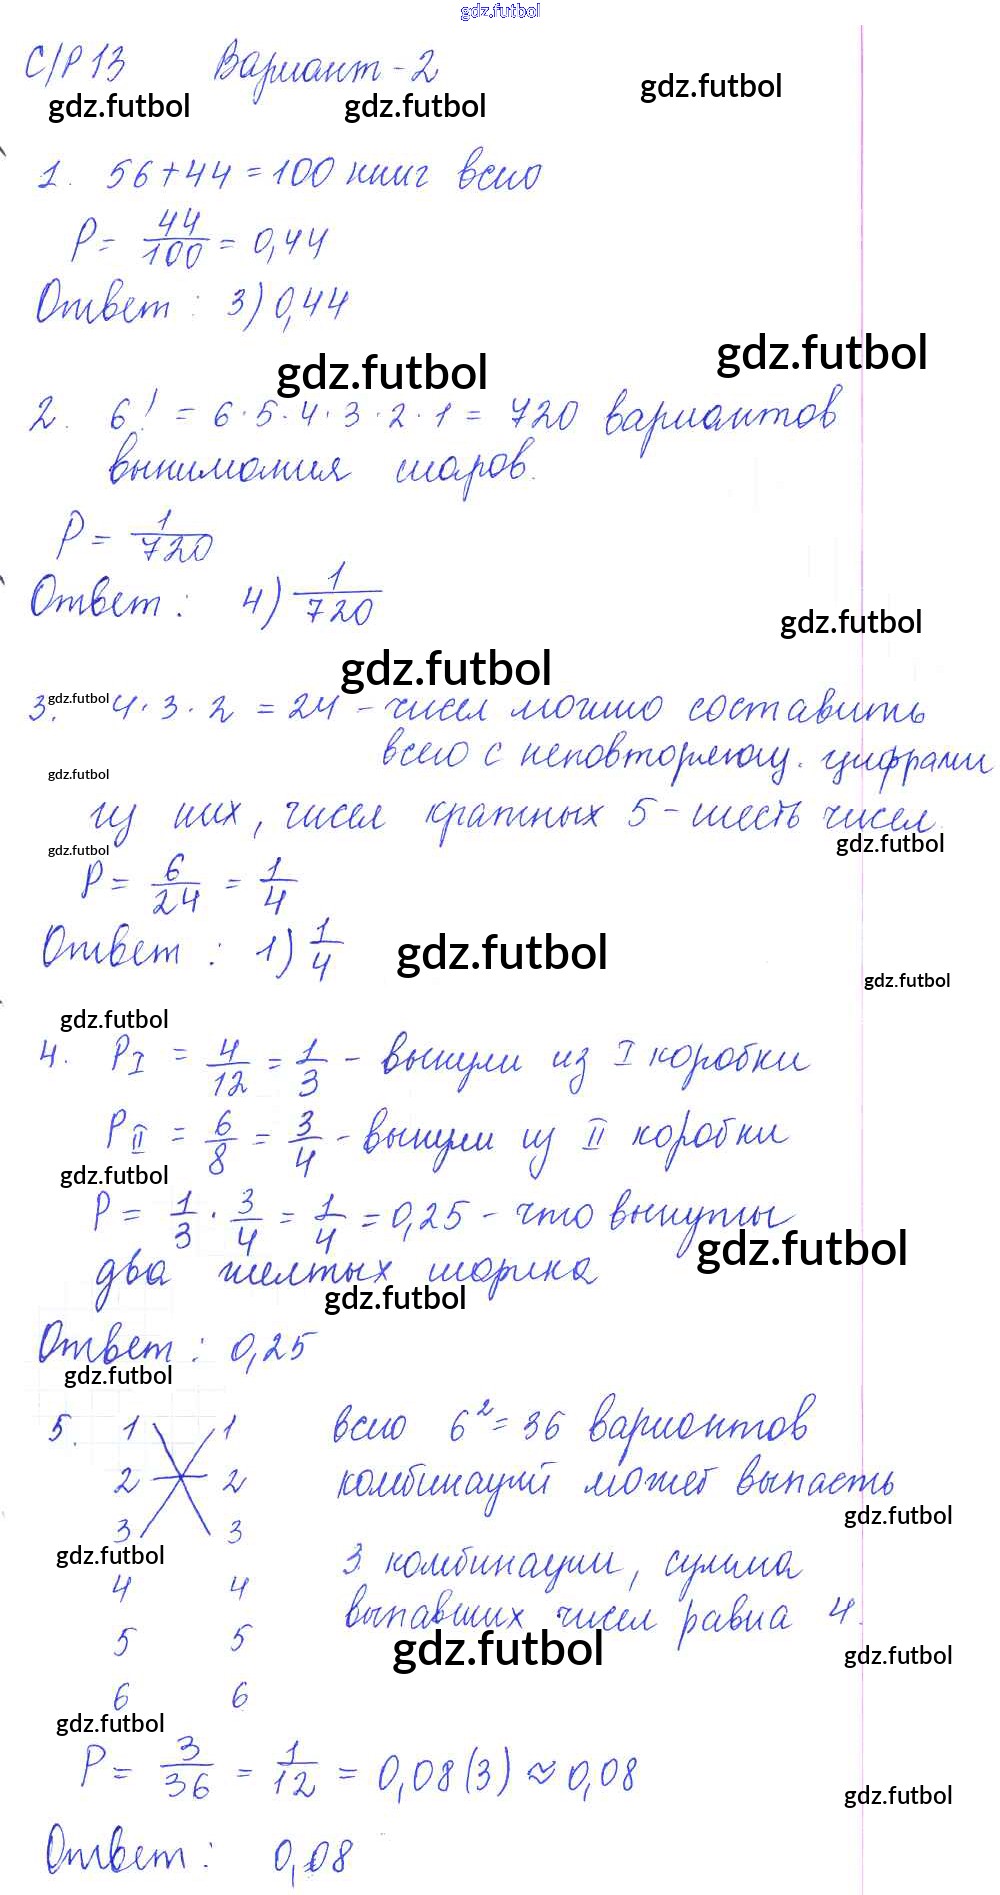 gdz.futbol
С/Р 13 Вариант-2
gdz.futbol gdz.futbol gdz.futbol
1. 56+44=100 книг всего
P = 44/100 = 0,44
Ответ: 3) 0,44
gdz.futbol gdz.futbol
2. 6! = 6·5·4·3·2·1 = 720 вариантов
вынимания шаров.
P = 1/720
Ответ: 4) 1/720
gdz.futbol
gdz.futbol
3. gdz.futbol 4·3·2 = 24 - чисел можно составить
всего с неповторяющ. цифрами
gdz.futbol
из них, чисел кратных 5 - шесть чисел.
gdz.futbol gdz.futbol
P = 6/24 = 1/4
Ответ: 1) 1/4
gdz.futbol gdz.futbol
gdz.futbol
4. P_I = 4/12 = 1/3 - вынули из I коробки
P_II = 6/8 = 3/4 - вынули из II коробки
gdz.futbol
P = 1/3 · 3/4 = 1/4 = 0,25 - что вынуты
gdz.futbol
два желтых шарика
gdz.futbol
Ответ: 0,25
gdz.futbol
5. 1 1 всего 6² = 36 вариантов
2 2 комбинаций может выпасть
gdz.futbol
3 3
gdz.futbol 3 комбинации, сумма
4 4 выпавших чисел равна 4.
5 5 gdz.futbol gdz.futbol
6 6
gdz.futbol
P = 3/36 = 1/12 = 0,08(3) ≈ 0,08
gdz.futbol
Ответ: 0,08